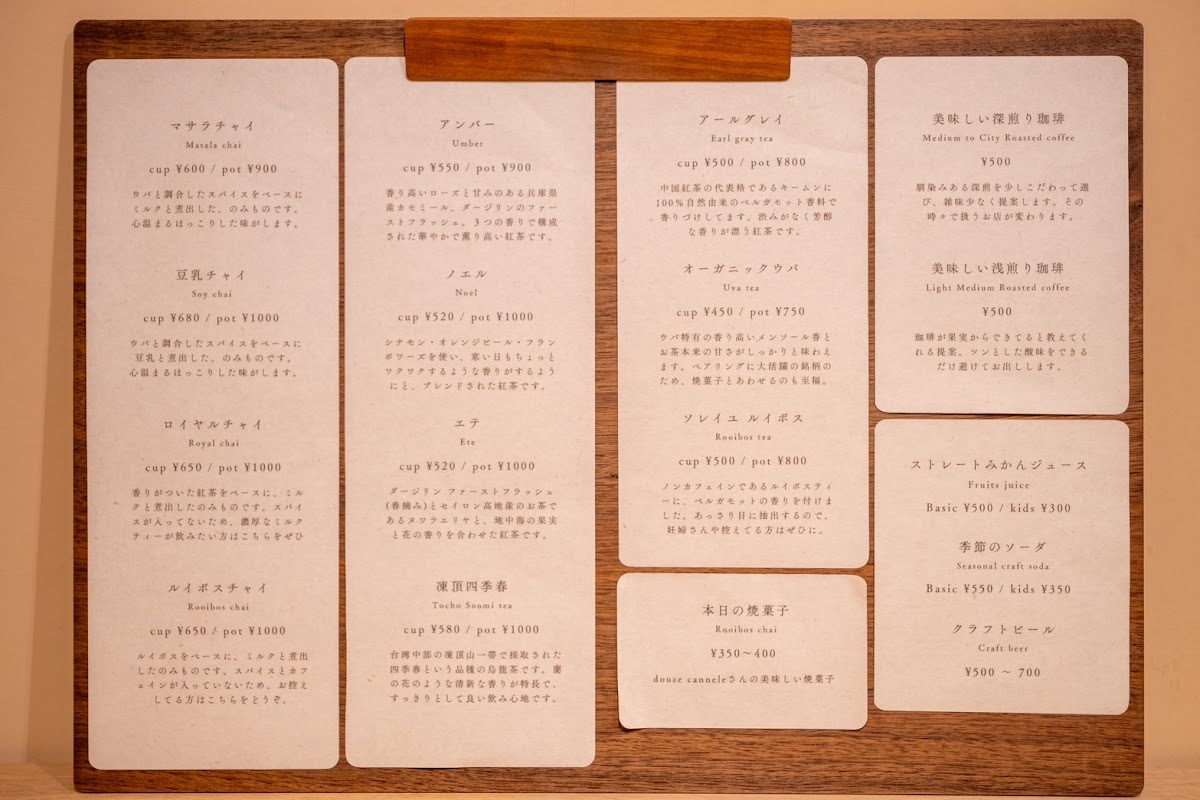 マサラチャイ
Masala chai
cup ¥600 / pot ¥900
ウバと調合したスパイスをベースに
ミルクと煮出した。のみものです。
心温まるほっこりした味がします。
豆乳チャイ
Soy chai
cup ¥680 / pot ¥1000
ウバと調合したスパイスをベースに
豆乳と煮出した。のみものです。
心温まるほっこりした味がします。
ロイヤルチャイ
Royal chai
cup ¥650 / pot ¥1000
香りがついた紅茶をベースに、ミル
クと煮出したのみものです。スパイ
スが入ってないため、濃厚なミルク
ティーが飲みたい方はこちらをぜひ
ルイボスチャイ
Rooibos chai
cup ¥650 / pot ¥1000
ルイボスをベースに、ミルクと煮出
したのみものです。スパイスとカフ
ェインが入っていないため、お控え
してる方はこちらをどうぞ。
アンバー
Umber
cup ¥550 / pot ¥900
香り高いローズと甘みのある兵庫県
産カモミール、ダージリンのファー
ストフラッシュ。3つの香りで構成
された華やかで薫り高い紅茶です。
ノエル
Noel
cup ¥520 / pot ¥1000
シナモン・オレンジピール・フラン
ボワーズを使い、寒い日もちょっと
ワクワクするような香りがするよう
にと、ブレンドされた紅茶です。
エテ
Ete
cup ¥520 / pot ¥1000
ダージリン ファーストフラッシュ
(春摘み)とセイロン高地産のお茶で
あるヌワラエリヤと、地中海の果実
と花の香りを合わせた紅茶です。
凍頂四季春
Tocho Suomi tea
cup ¥580 / pot ¥1000
台湾中部の凍頂山一帯で採取された
四季春という品種の烏龍茶です。蘭
の花のような清新な香りが特長で、
すっきりとして良い飲み心地です。
アールグレイ
Earl gray tea
cup ¥500 / pot ¥800
中国紅茶の代表格であるキームンに
100%自然由来のベルガモット香料で
香りづけしてます。渋みがなく芳醇
な香りが漂う紅茶です。
オーガニックウバ
Uva tea
cup ¥450 / pot ¥750
ウバ特有の香り高いメンソール香と
お茶本来の甘さがしっかりと味わえ
ます。ペアリングに大活躍の銘柄の
ため、焼菓子とあわせるのも至福。
ソレイユ ルイボス
Rooibos tea
cup ¥500 / pot ¥800
ノンカフェインであるルイボスティ
ーに、ベルガモットの香りを付けま
した。あっさり目に抽出するので、
妊婦さんや控えてる方はぜひに。
本日の焼菓子
Rooibos chai
¥350〜400
douze canneleさんの美味しい焼菓子
美味しい深煎り珈琲
Medium to City Roasted coffee
¥500
馴染みある深煎を少しこだわって選
び、雑味少なく提案します。その
時々で扱うお店が変わります。
美味しい浅煎り珈琲
Light Medium Roasted coffee
¥500
珈琲が果実からできてると教えてく
れる提案。ツンとした酸味をできる
だけ避けてお出しします。
ストレートみかんジュース
Fruits juice
Basic ¥500 / kids ¥300
季節のソーダ
Seasonal craft soda
Basic ¥550 / kids ¥350
クラフトビール
Craft beer
¥500 〜 700